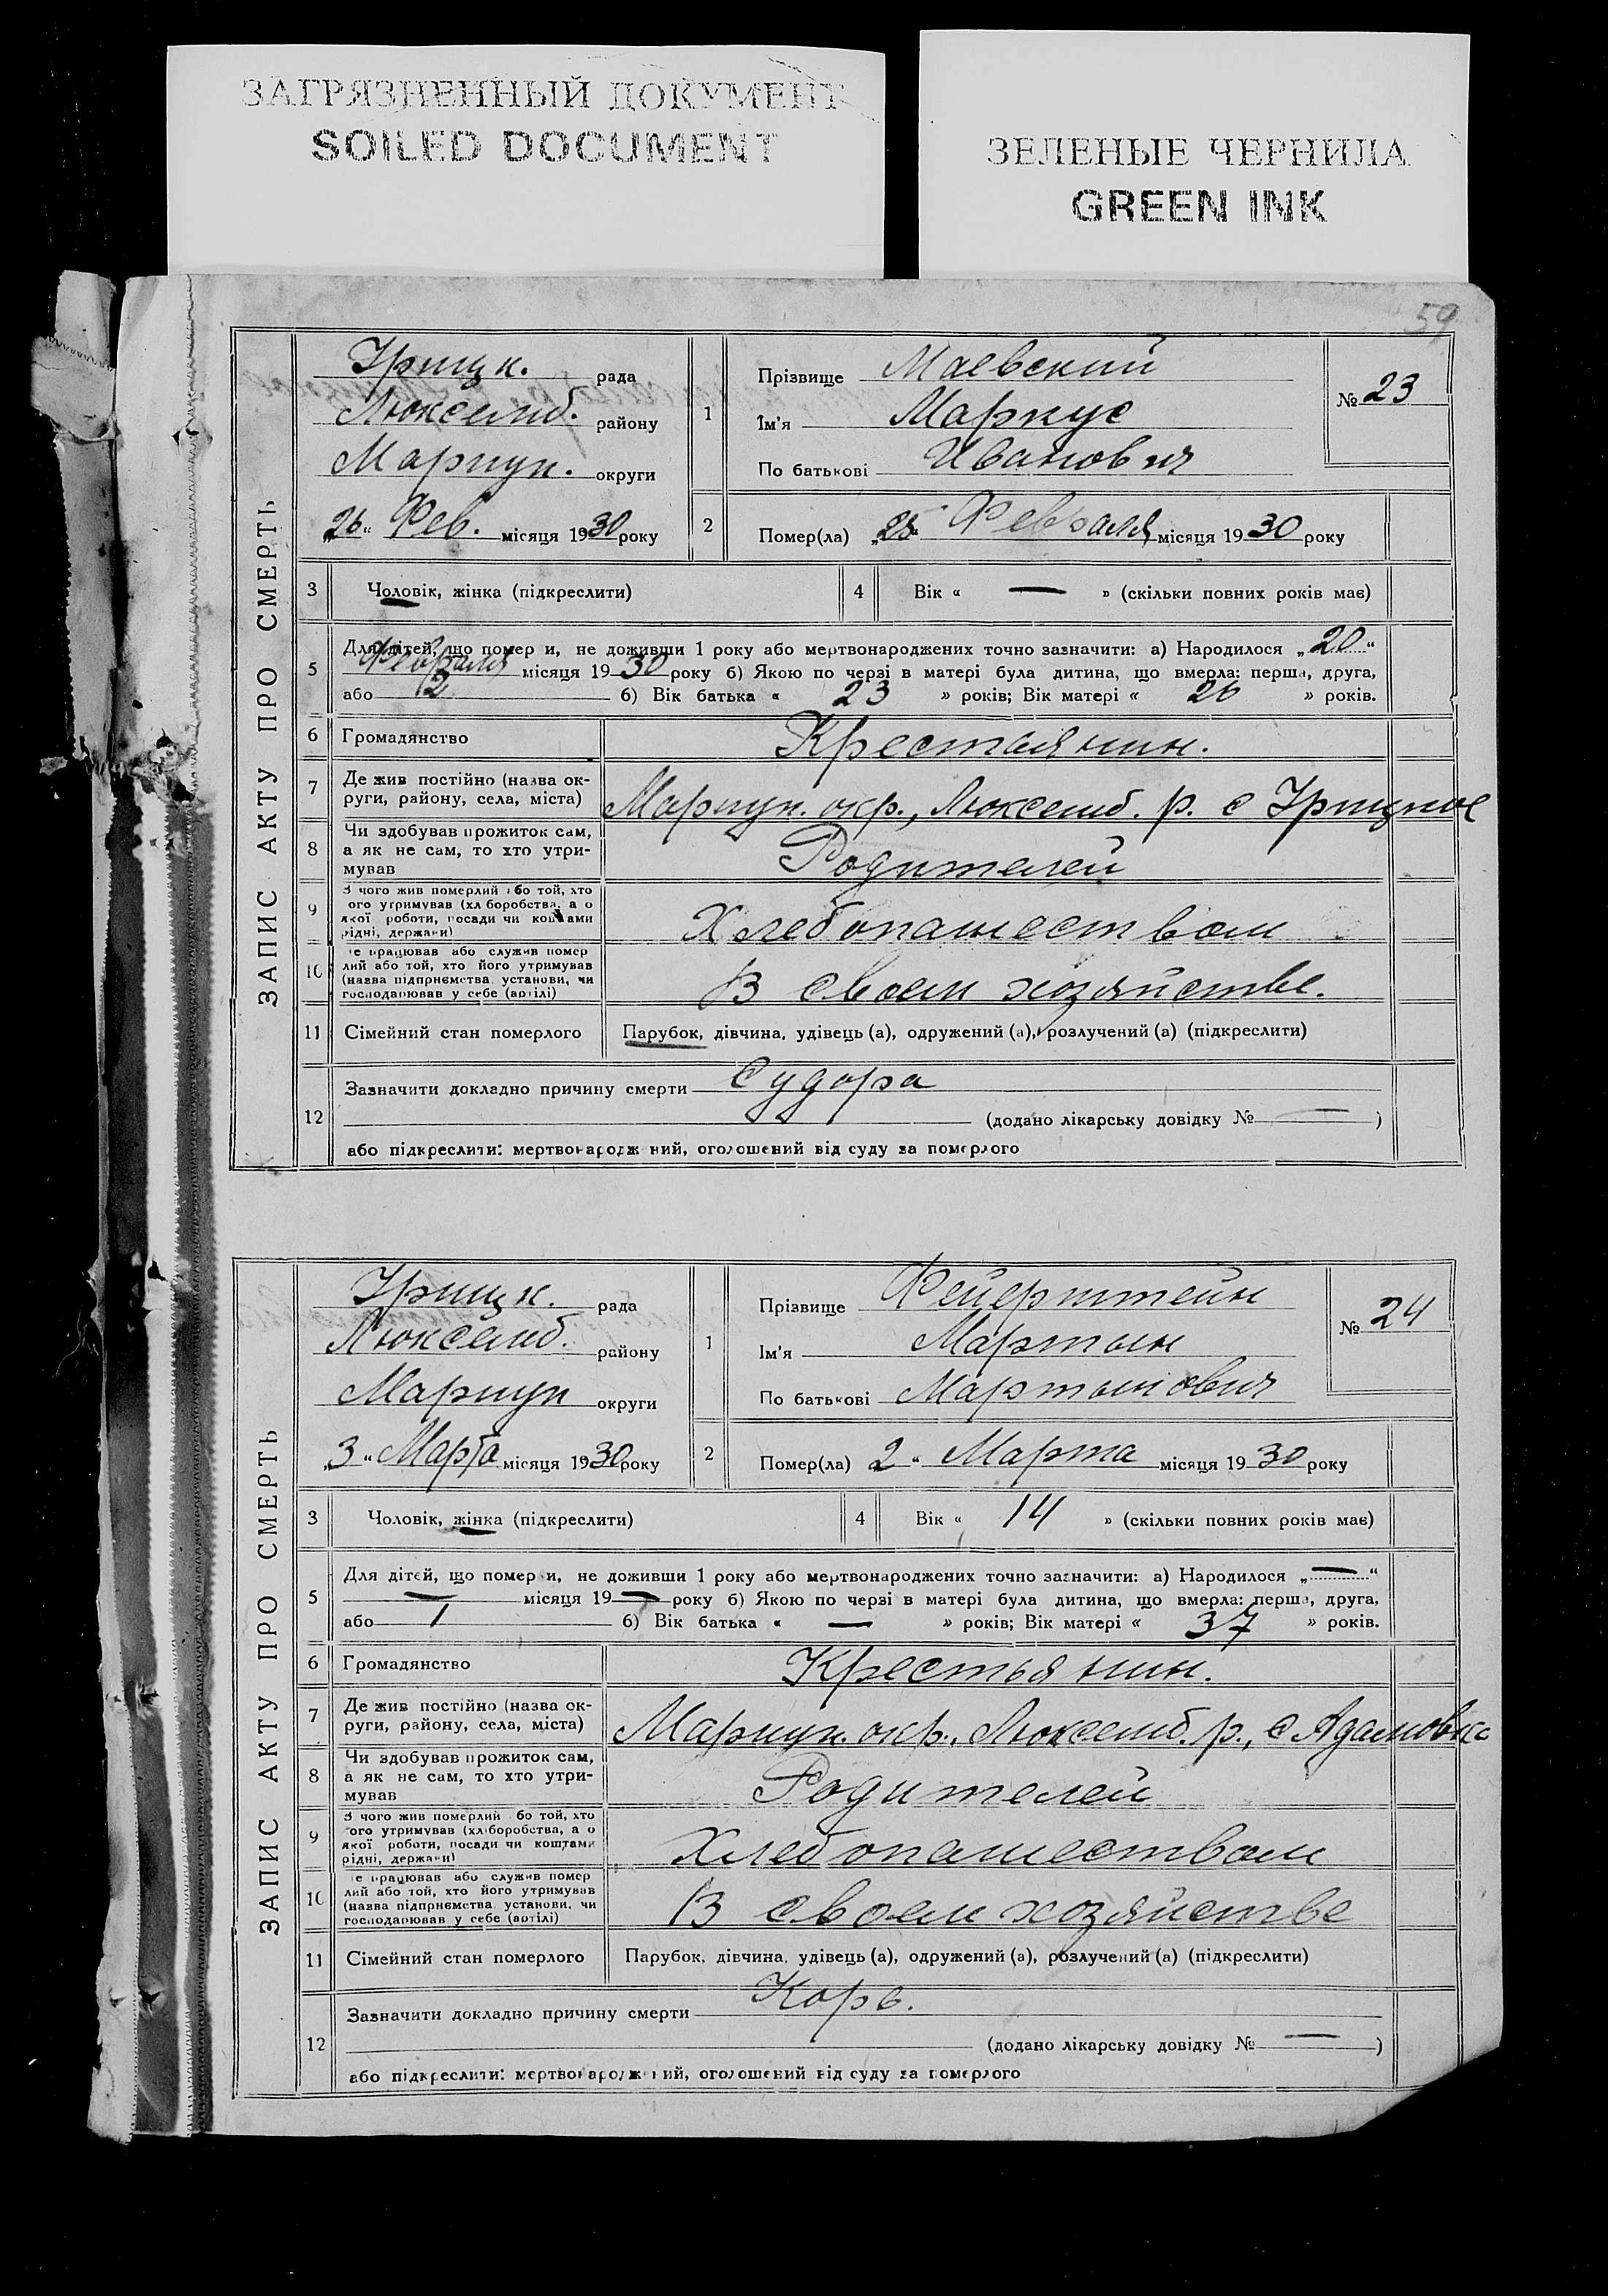 ЗАГРЯЗНЕННЫЙ ДОКУМЕНТ
SOILED DOCUMENT
ЗЕЛЕНЫЕ ЧЕРНИЛА
GREEN INK
59
ЗАПИС АКТУ ПРО СМЕРТЬ
Урицк. рада
Люксемб. району
Мариуп. округи
„26“ Фев. місяця 1930 року
1
Прізвище Маевский
Ім'я Маркус
По батькові Иванович
№ 23
2
Помер(ла) „25“ Февраля місяця 1930 року
3 Чоловік, жінка (підкреслити)
4 Вік « — » (скільки повних років має)
5 Для дітей, що померли, не доживши 1 року або мертвонароджених точно зазначити: а) Народилося „20“
Февраля місяця 1930 року б) Якою по черзі в матері була дитина, що вмерла: перша, друга,
або 2 б) Вік батька « 23 » років; Вік матері « 26 » років.
6 Громадянство Крестьянин.
7 Де жив постійно (назва ок-
руги, району, села, міста) Мариуп. окр., Люксемб. р. с Урицкое
8 Чи здобував прожиток сам,
а як не сам, то хто утри-
мував Родителей
9 З чого жив померлий або той, хто
його утримував (хліборобства, а о
якої роботи, посади чи коштами
рідні, держави) Хлебопашеством
10 Де працював або служив помер
лий або той, хто його утримував
(назва підприємства, установи, чи
господарював у себе (артілі) В своем хозяйстве.
11 Сімейний стан померлого Парубок, дівчина, удівець (а), одружений (а), розлучений (а) (підкреслити)
12 Зазначити докладно причину смерти Судора
(додано лікарську довідку № — )
або підкреслити: мертвонароджений, оголошений від суду за померлого
ЗАПИС АКТУ ПРО СМЕРТЬ
Урицк. рада
Люксемб. району
Мариуп округи
„3“ Марта місяця 1930 року
1
Прізвище Фейерштейн
Ім'я Мартын
По батькові Мартынович
№ 24
2
Помер(ла) 2 “ Марта місяця 1930 року
3 Чоловік, жінка (підкреслити)
4 Вік « 14 » (скільки повних років має)
5 Для дітей, що померли, не доживши 1 року або мертвонароджених точно зазначити: а) Народилося „—“
— місяця 19— року б) Якою по черзі в матері була дитина, що вмерла: перша, друга,
або 1 б) Вік батька « — » років; Вік матері « 37 » років.
6 Громадянство Крестьянин.
7 Де жив постійно (назва ок-
руги, району, села, міста) Мариуп. окр., Люксемб. р., с Адамовка
8 Чи здобував прожиток сам,
а як не сам, то хто утри-
мував Родителей
9 З чого жив померлий або той, хто
його утримував (хліборобства, а о
якої роботи, посади чи коштами
рідні, держави) Хлебопашеством
10 Де працював або служив помер
лий або той, хто його утримував
(назва підприємства, установи, чи
господарював у себе (артілі) В своем хозяйстве
11 Сімейний стан померлого Парубок, дівчина, удівець (а), одружений (а), розлучений (а) (підкреслити)
12 Зазначити докладно причину смерти Корь.
(додано лікарську довідку № — )
або підкреслити: мертвонароджений, оголошений від суду за померлого